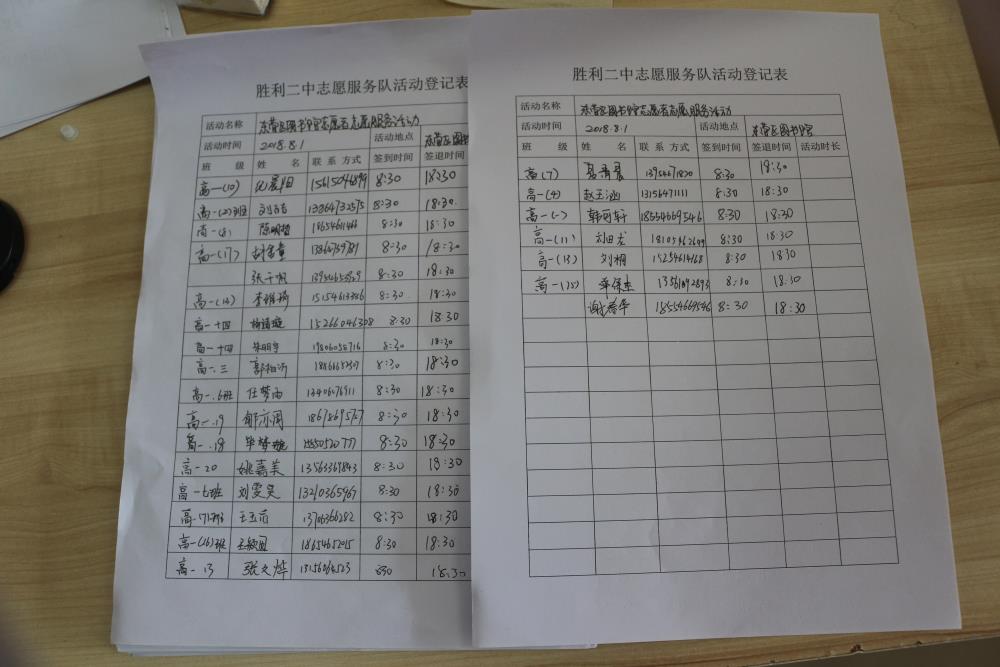 胜利二中志愿服务队活动登记表
活动名称 东营区图书馆志愿者志愿服务活动
活动时间 2018.8.1 活动地点 东营区图书馆
班 级 姓 名 联 系 方式 签到时间 签退时间
高一(10) 15615044899 8:30 18:30
高一(2)班 13864732575 8:30 18:30
高一(8) 陈明哲 18654611466 8:30 18:30
高一(17) 13864739781 8:30 18:30
张千帆 8:30 18:30
高一(14) 李雅琦 15154613386 8:30 18:30
高一十四 杨靖璇 15266046308 8:30 18:30
高一十四 朱明宇 19806058716 8:30 18:30
高一.三 郭相沂 8:30 18:30
高一.6班 任梦雨 13406076911 8:30 18:30
高一.19 郁亦周 18678695757 8:30 18:30
高一.18 毕梦璇 8:30 18:30
高一20 姚嘉美 13563369843 8:30 18:30
高一七班 刘雯昊 13210365967 8:30 18:30
高一(7)班 王玉芯 13706366282 8:30 18:30
高一(16)班 18654652015 8:30 18:30
高一.13 张文烨 13156068523 830 18:30
胜利二中志愿服务队活动登记表
活动名称 东营区图书馆志愿者志愿服务活动
活动时间 2018.8.1 活动地点 东营区图书馆
班 级 姓 名 联 系 方式 签到时间 签退时间 活动时长
高一(7) 13954671820 8:30 18:30
高一(4) 赵玉涵 13156471111 8:30 18:30
高一(一) 韩可轩 18554669546 8:30 18:30
高一(11) 刘田龙 18105462649 8:30 18:30
高一(13) 刘桐 15254614168 8:30 18:30
高一(12) 8:30 18:30
谢春华 18554669546 8:30 18:30